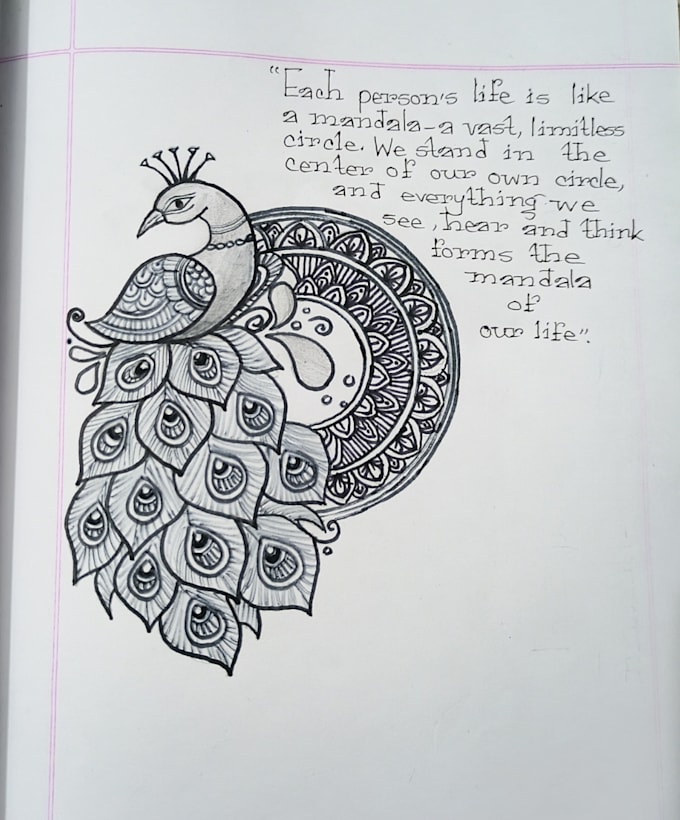 "Each person's life is like
a mandala-a vast, limitless
circle. We stand in the
center of our own circle,
and everything we
see, hear and think
forms the
mandala
of
our life".